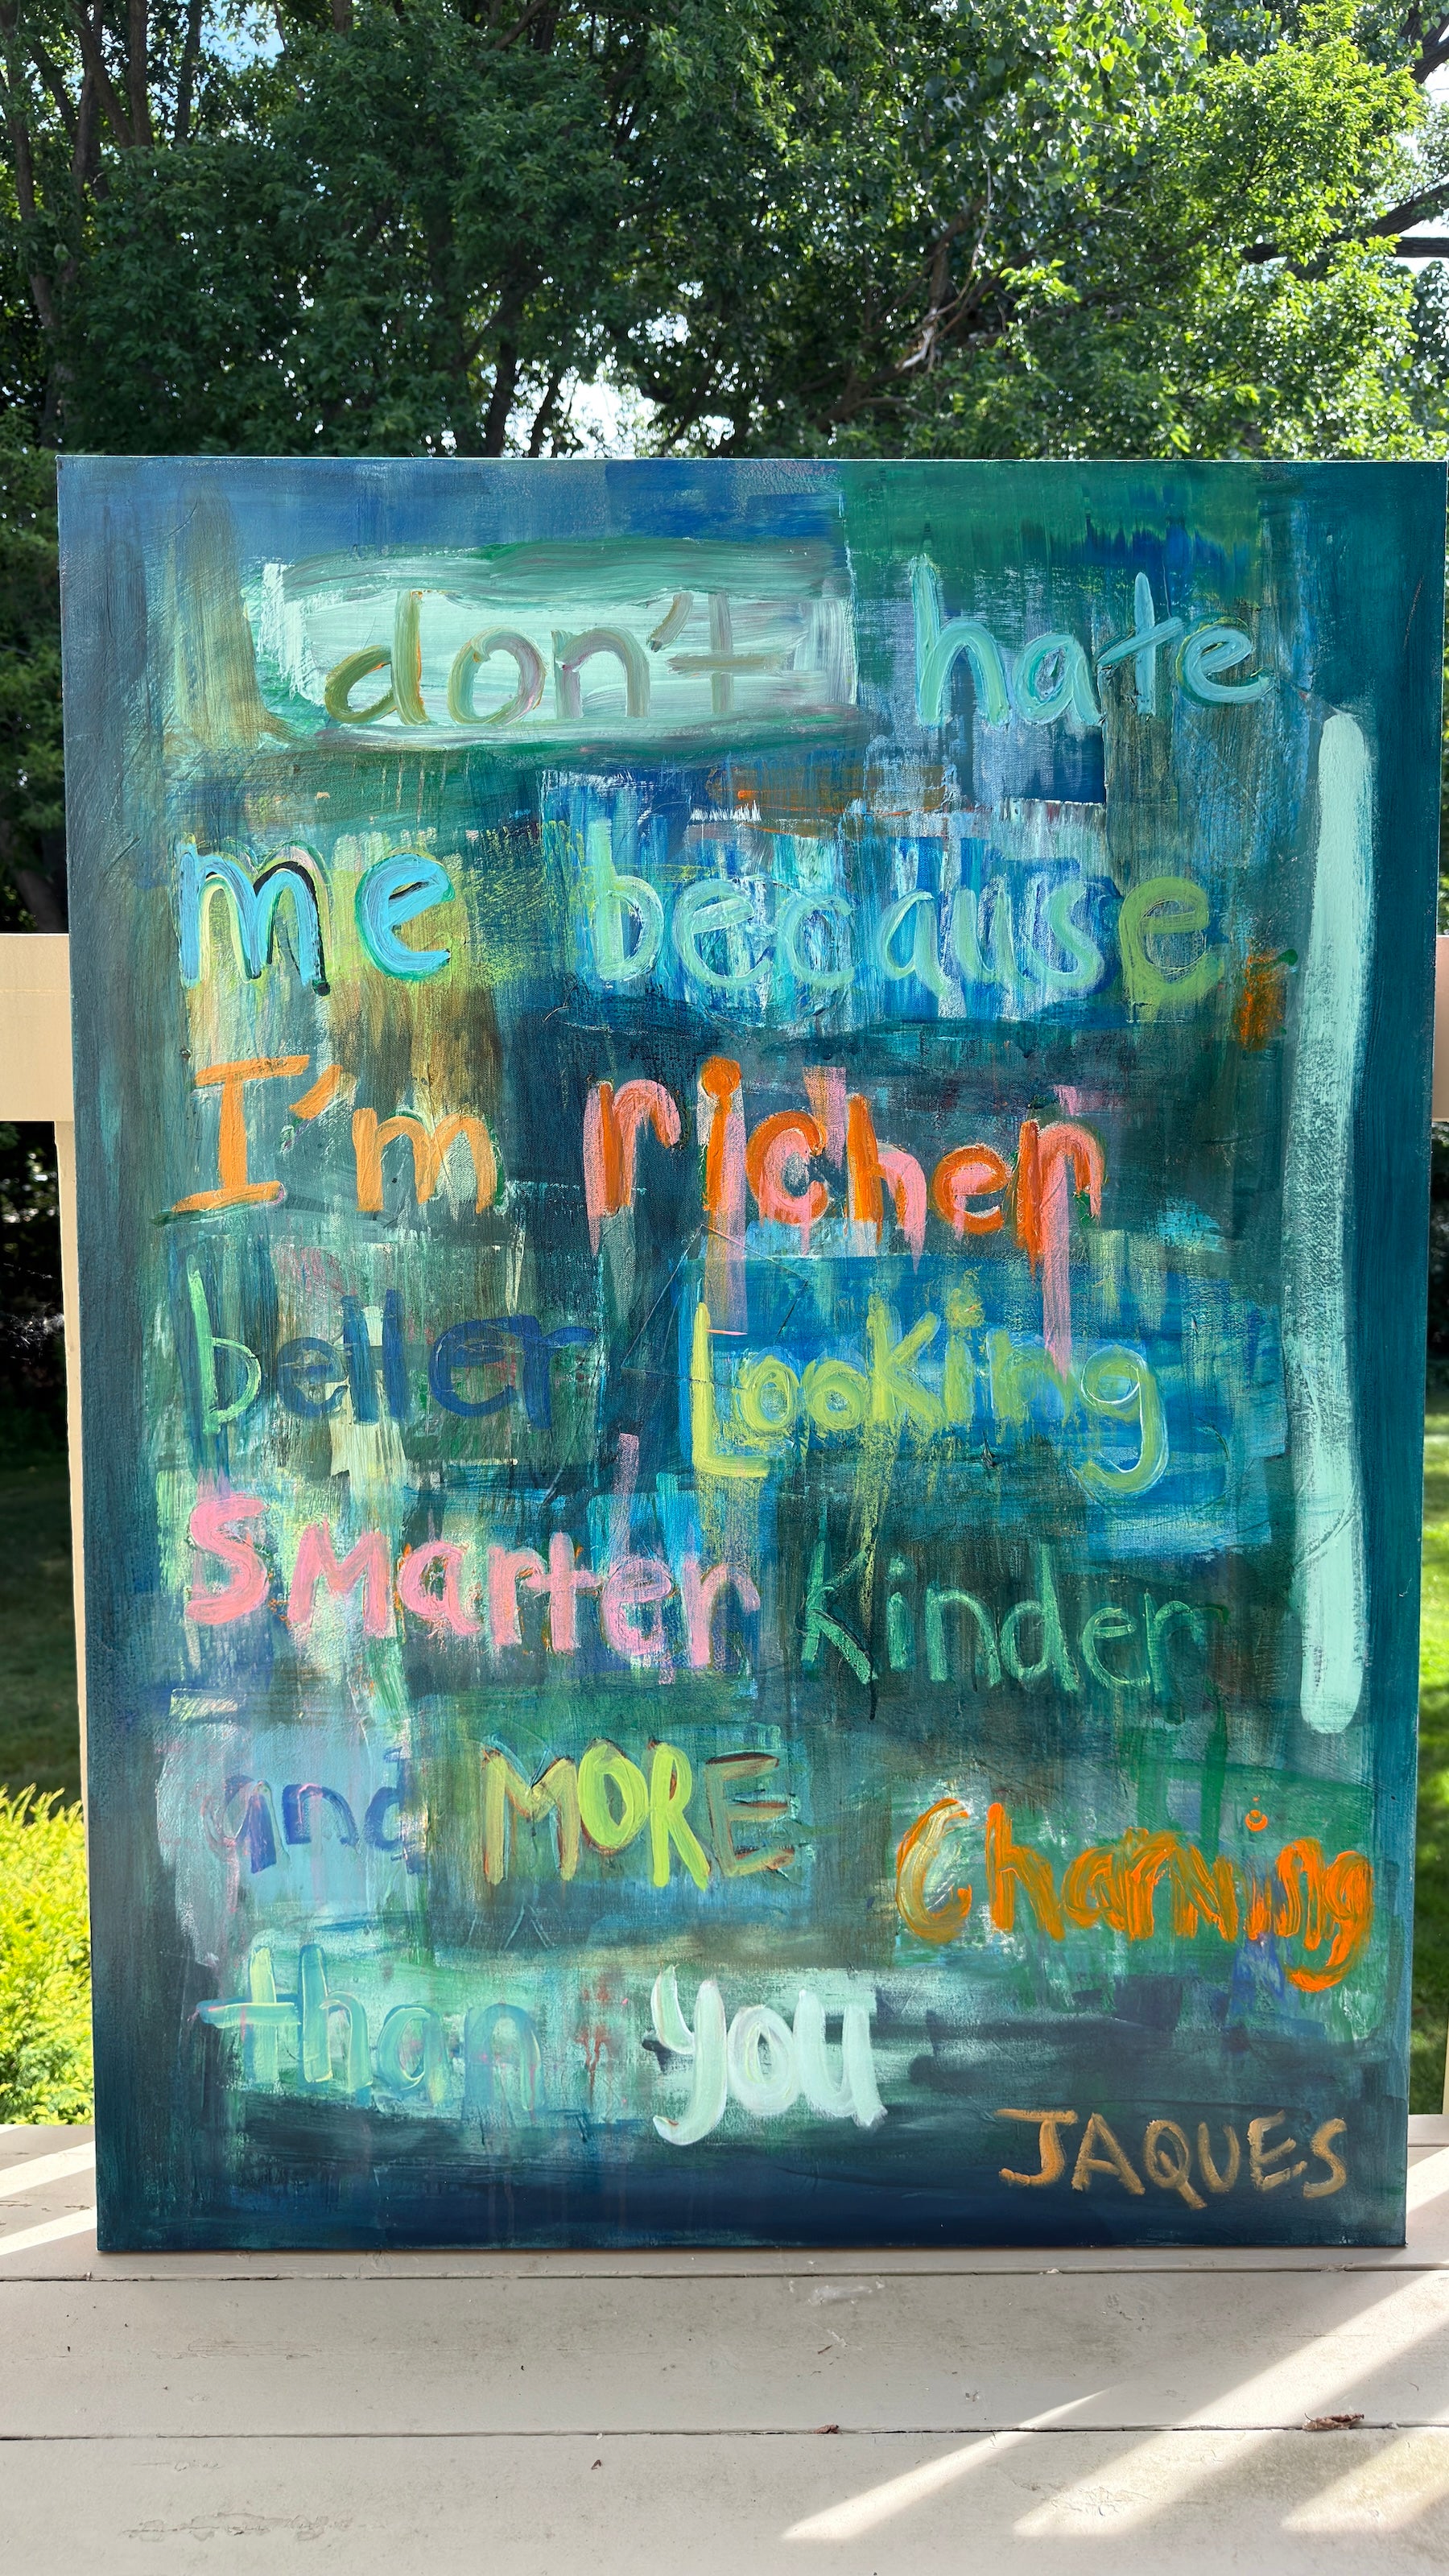 don't hate
me because,
I'm richer
better Looking
Smarter kinder
and MORE Charming
than you
JAQUES